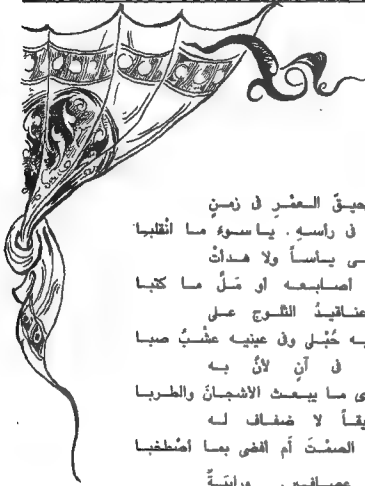 حيقَ العمْرِ فى زمنٍ
فى رأسهِ . ياسوءَ ما انْقلبا
ى يأساً ولا هدأتْ
أصابعه أو مَلَّ ما كتبا
عناقيدُ الثلوج على
ه حُبْلى وفى عينيه عشْبٌ صبا
فى آنٍ لأنَّ به
ى ما يبعث الأشجانَ والطربا
يقاً لا ضفاف له
الصمْتَ أم أفضى بما أصْطخبا
عصافير . ورابيَةٌ